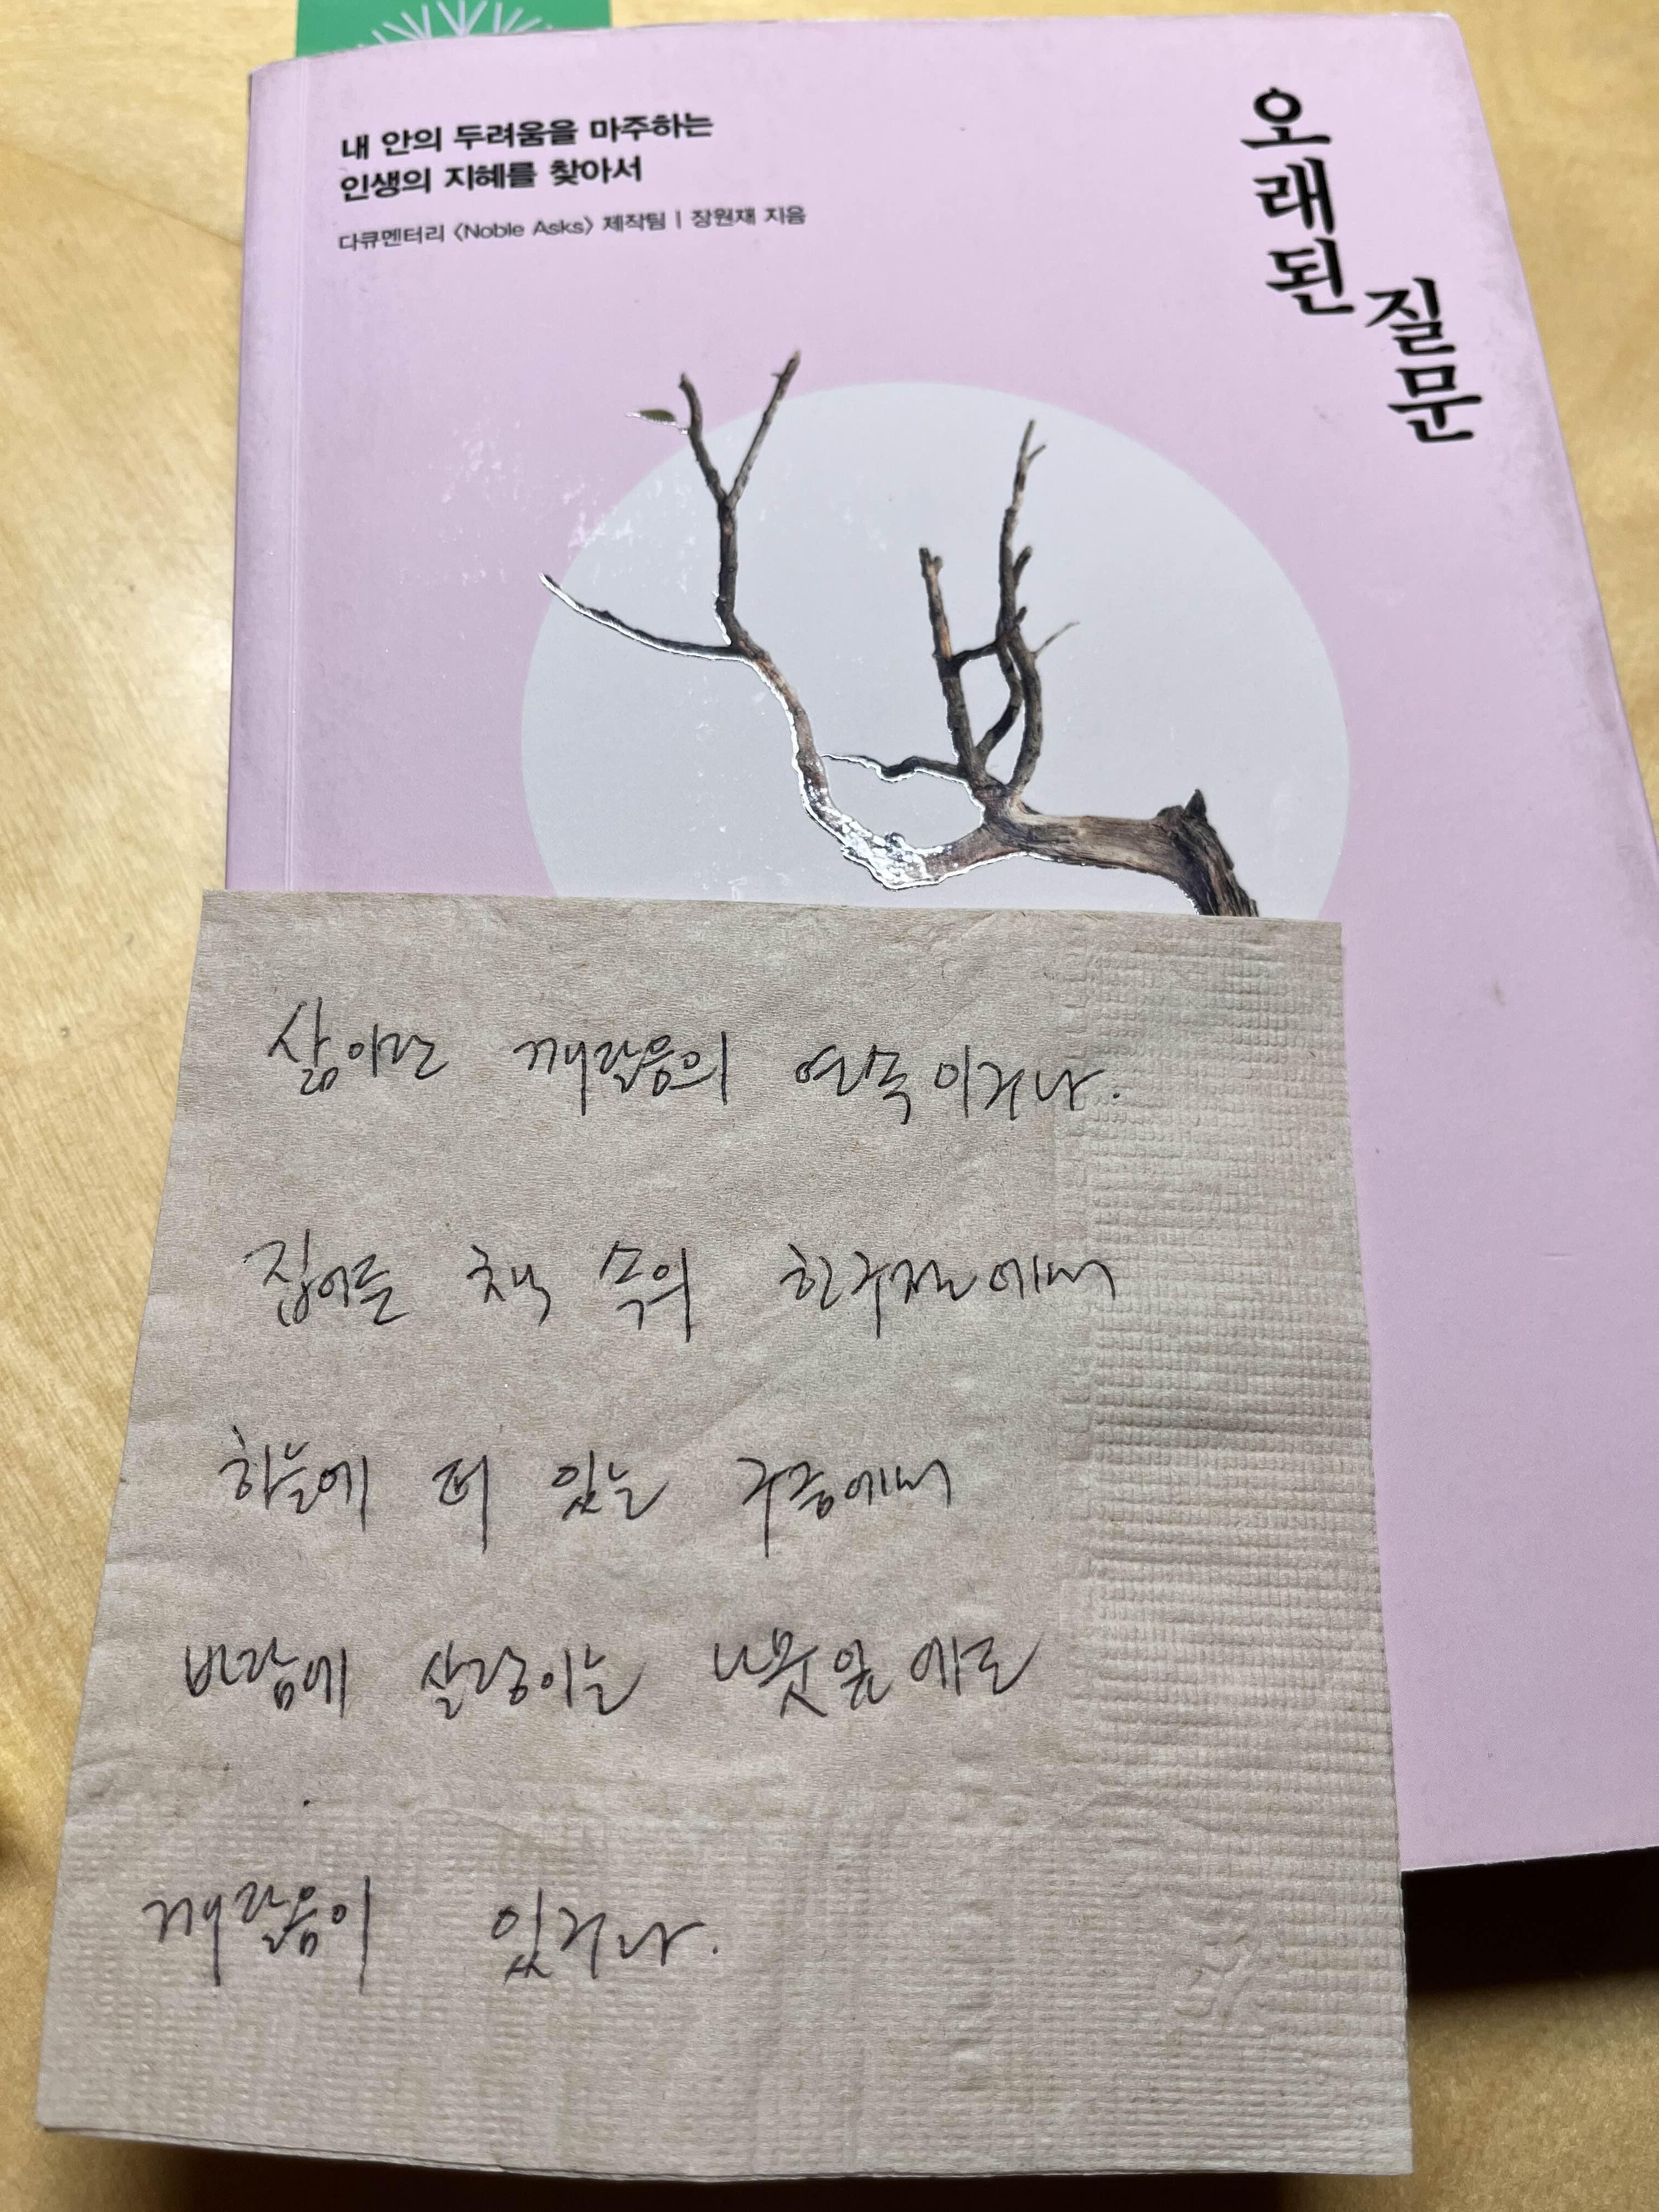 내 안의 두려움을 마주하는
인생의 지혜를 찾아서
다큐멘터리 〈Noble Asks〉 제작팀 | 장원재 지음
오래된
질문
삶이란 깨달음의 연속이거나.
집어든 책 속의 한구절에서
하늘에 떠 있는 구름에서
바람에 살랑이는 나뭇잎에도
깨달음이 있거나.